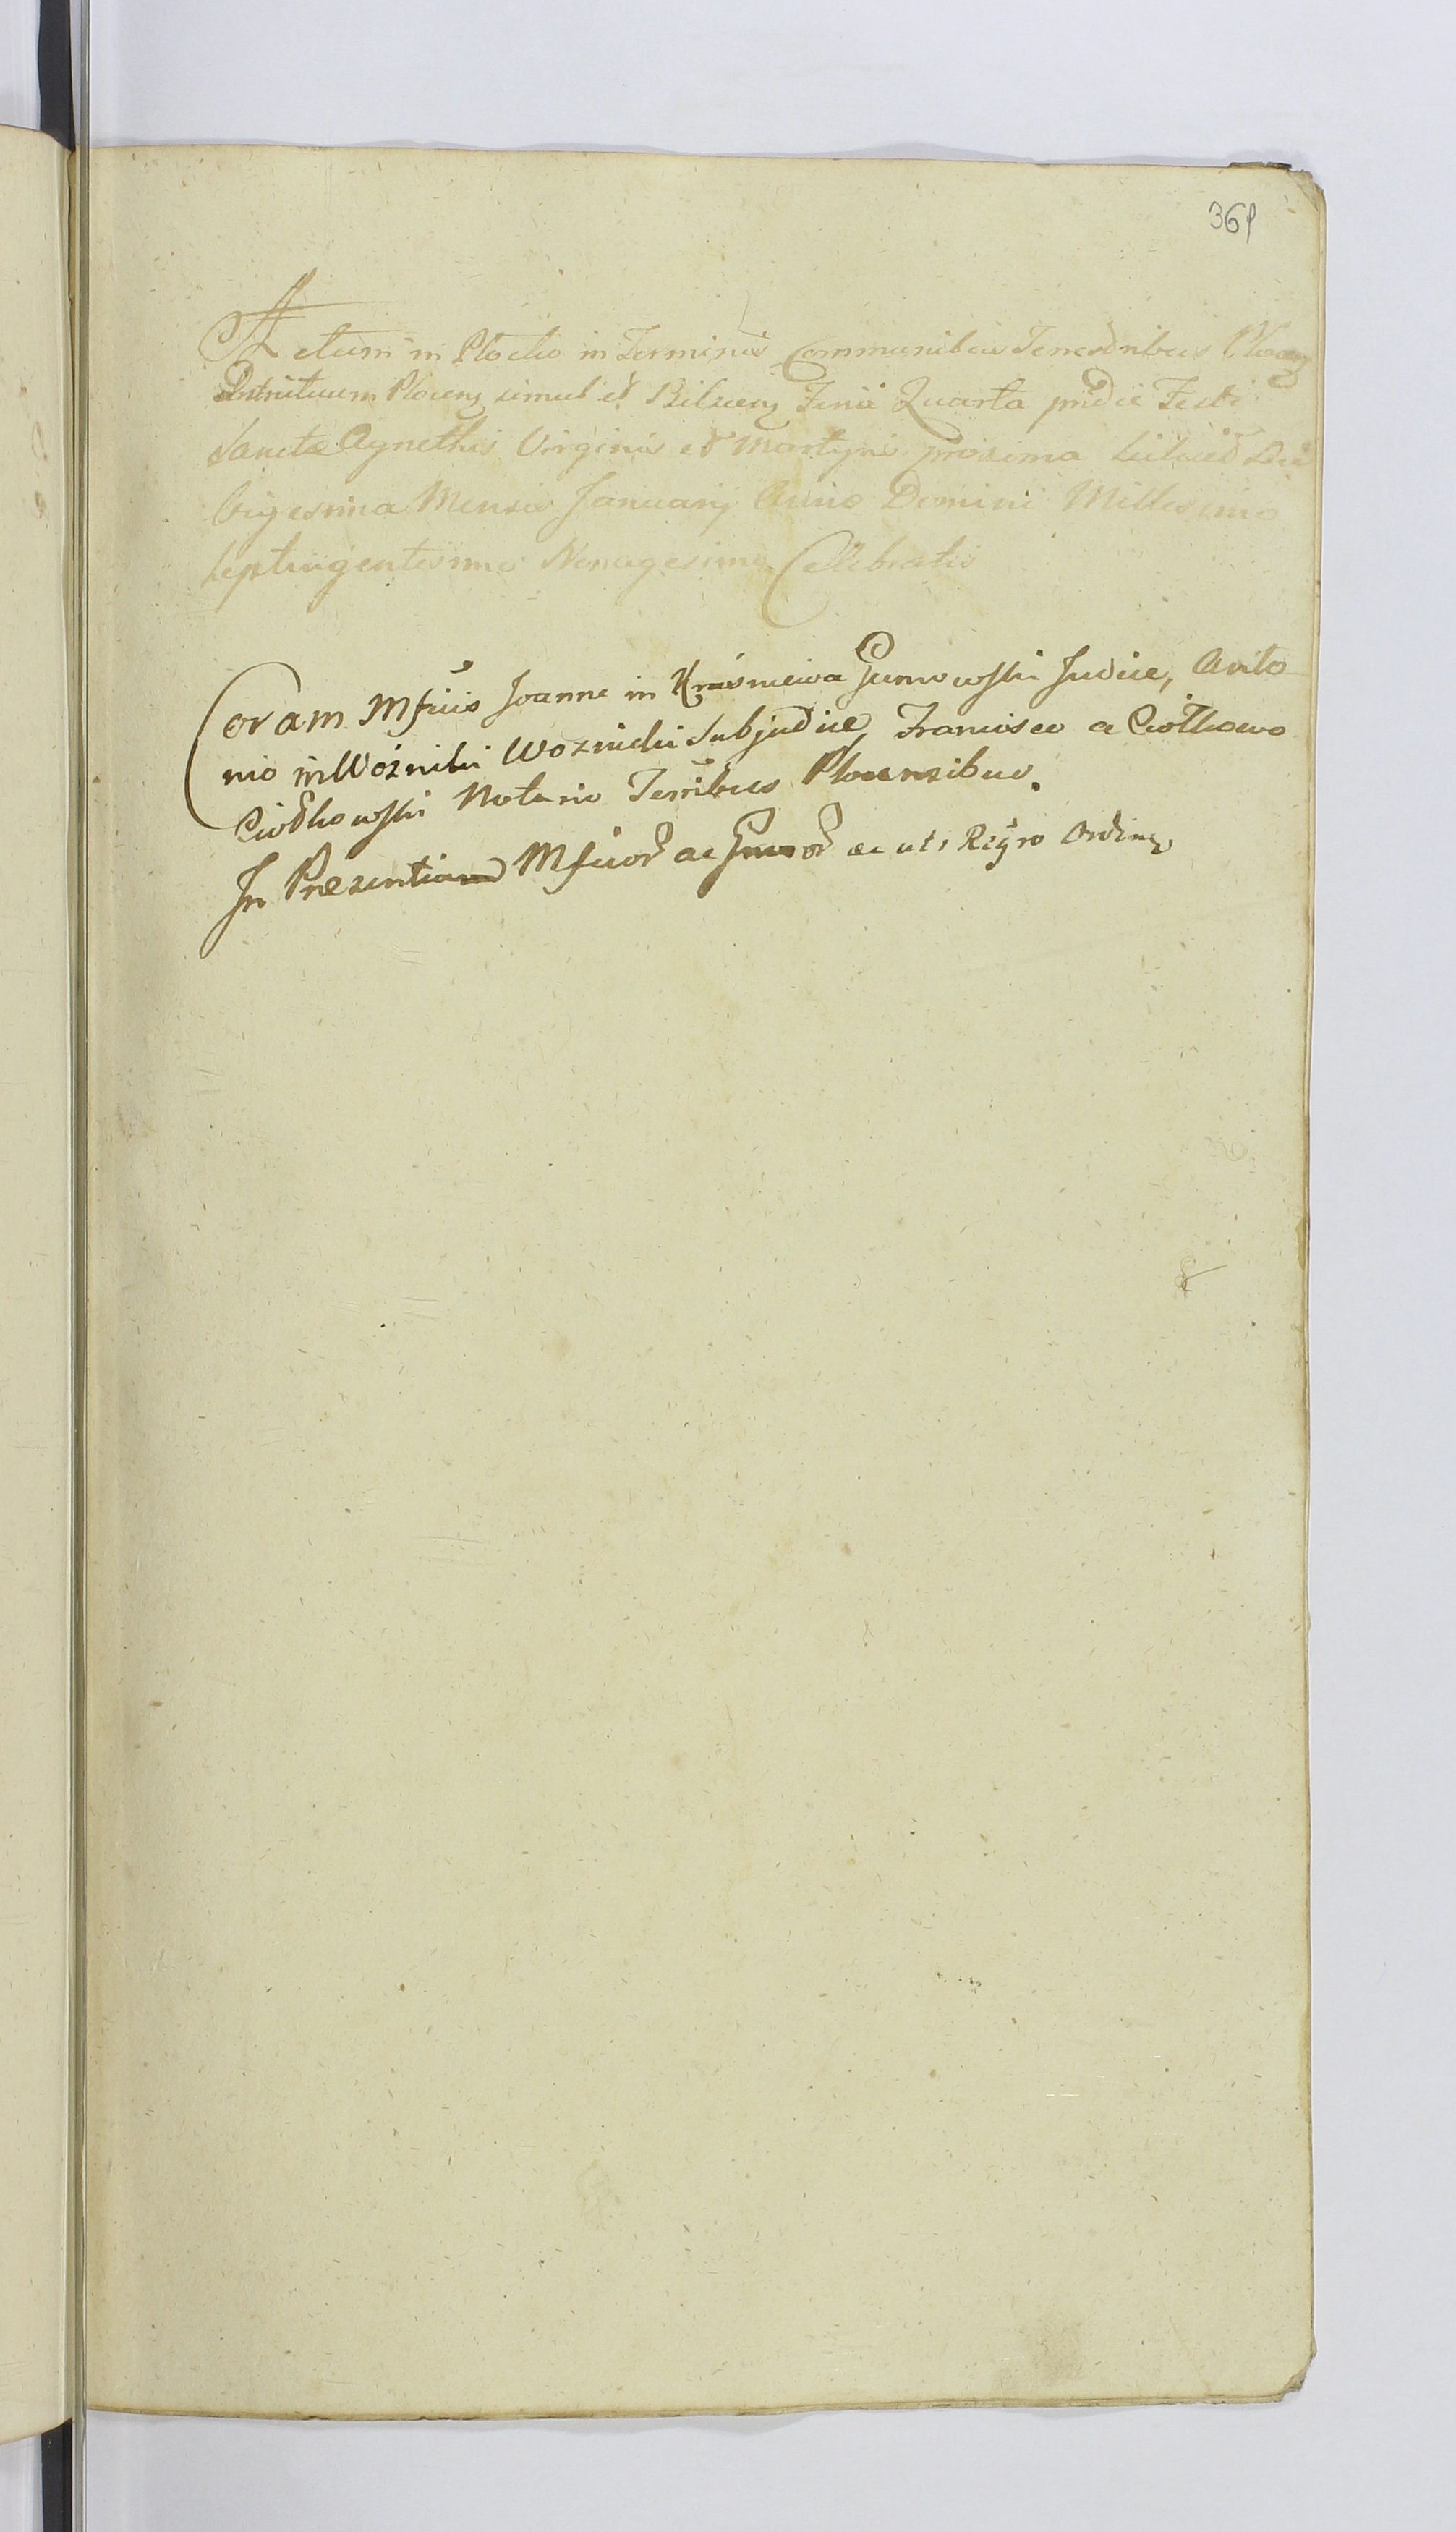 369
Actum in Plocko in Terminis Communibus Terrestribus Plocen
Districtuum Plocen simul et Bilscen Feria Quarta pridie Festi
Sanctæ Agnethis Virginis et Martyris proxima scilicet Die
Vigesima Mensis Januarij Anno Domini Millesimo
Septingentesimo Nonagesimo Celebratis
Coram Mfficis Joanne in Kraśniewa Gumowski Judice, Anto
nio in Woźniki Woznicki Subjudice, Francisco a Ciółkowo
Ciółkowski Notario Terribus Plocensibus.
In Præsentia Mficor ac Gnsor ac uti Regro Ordine